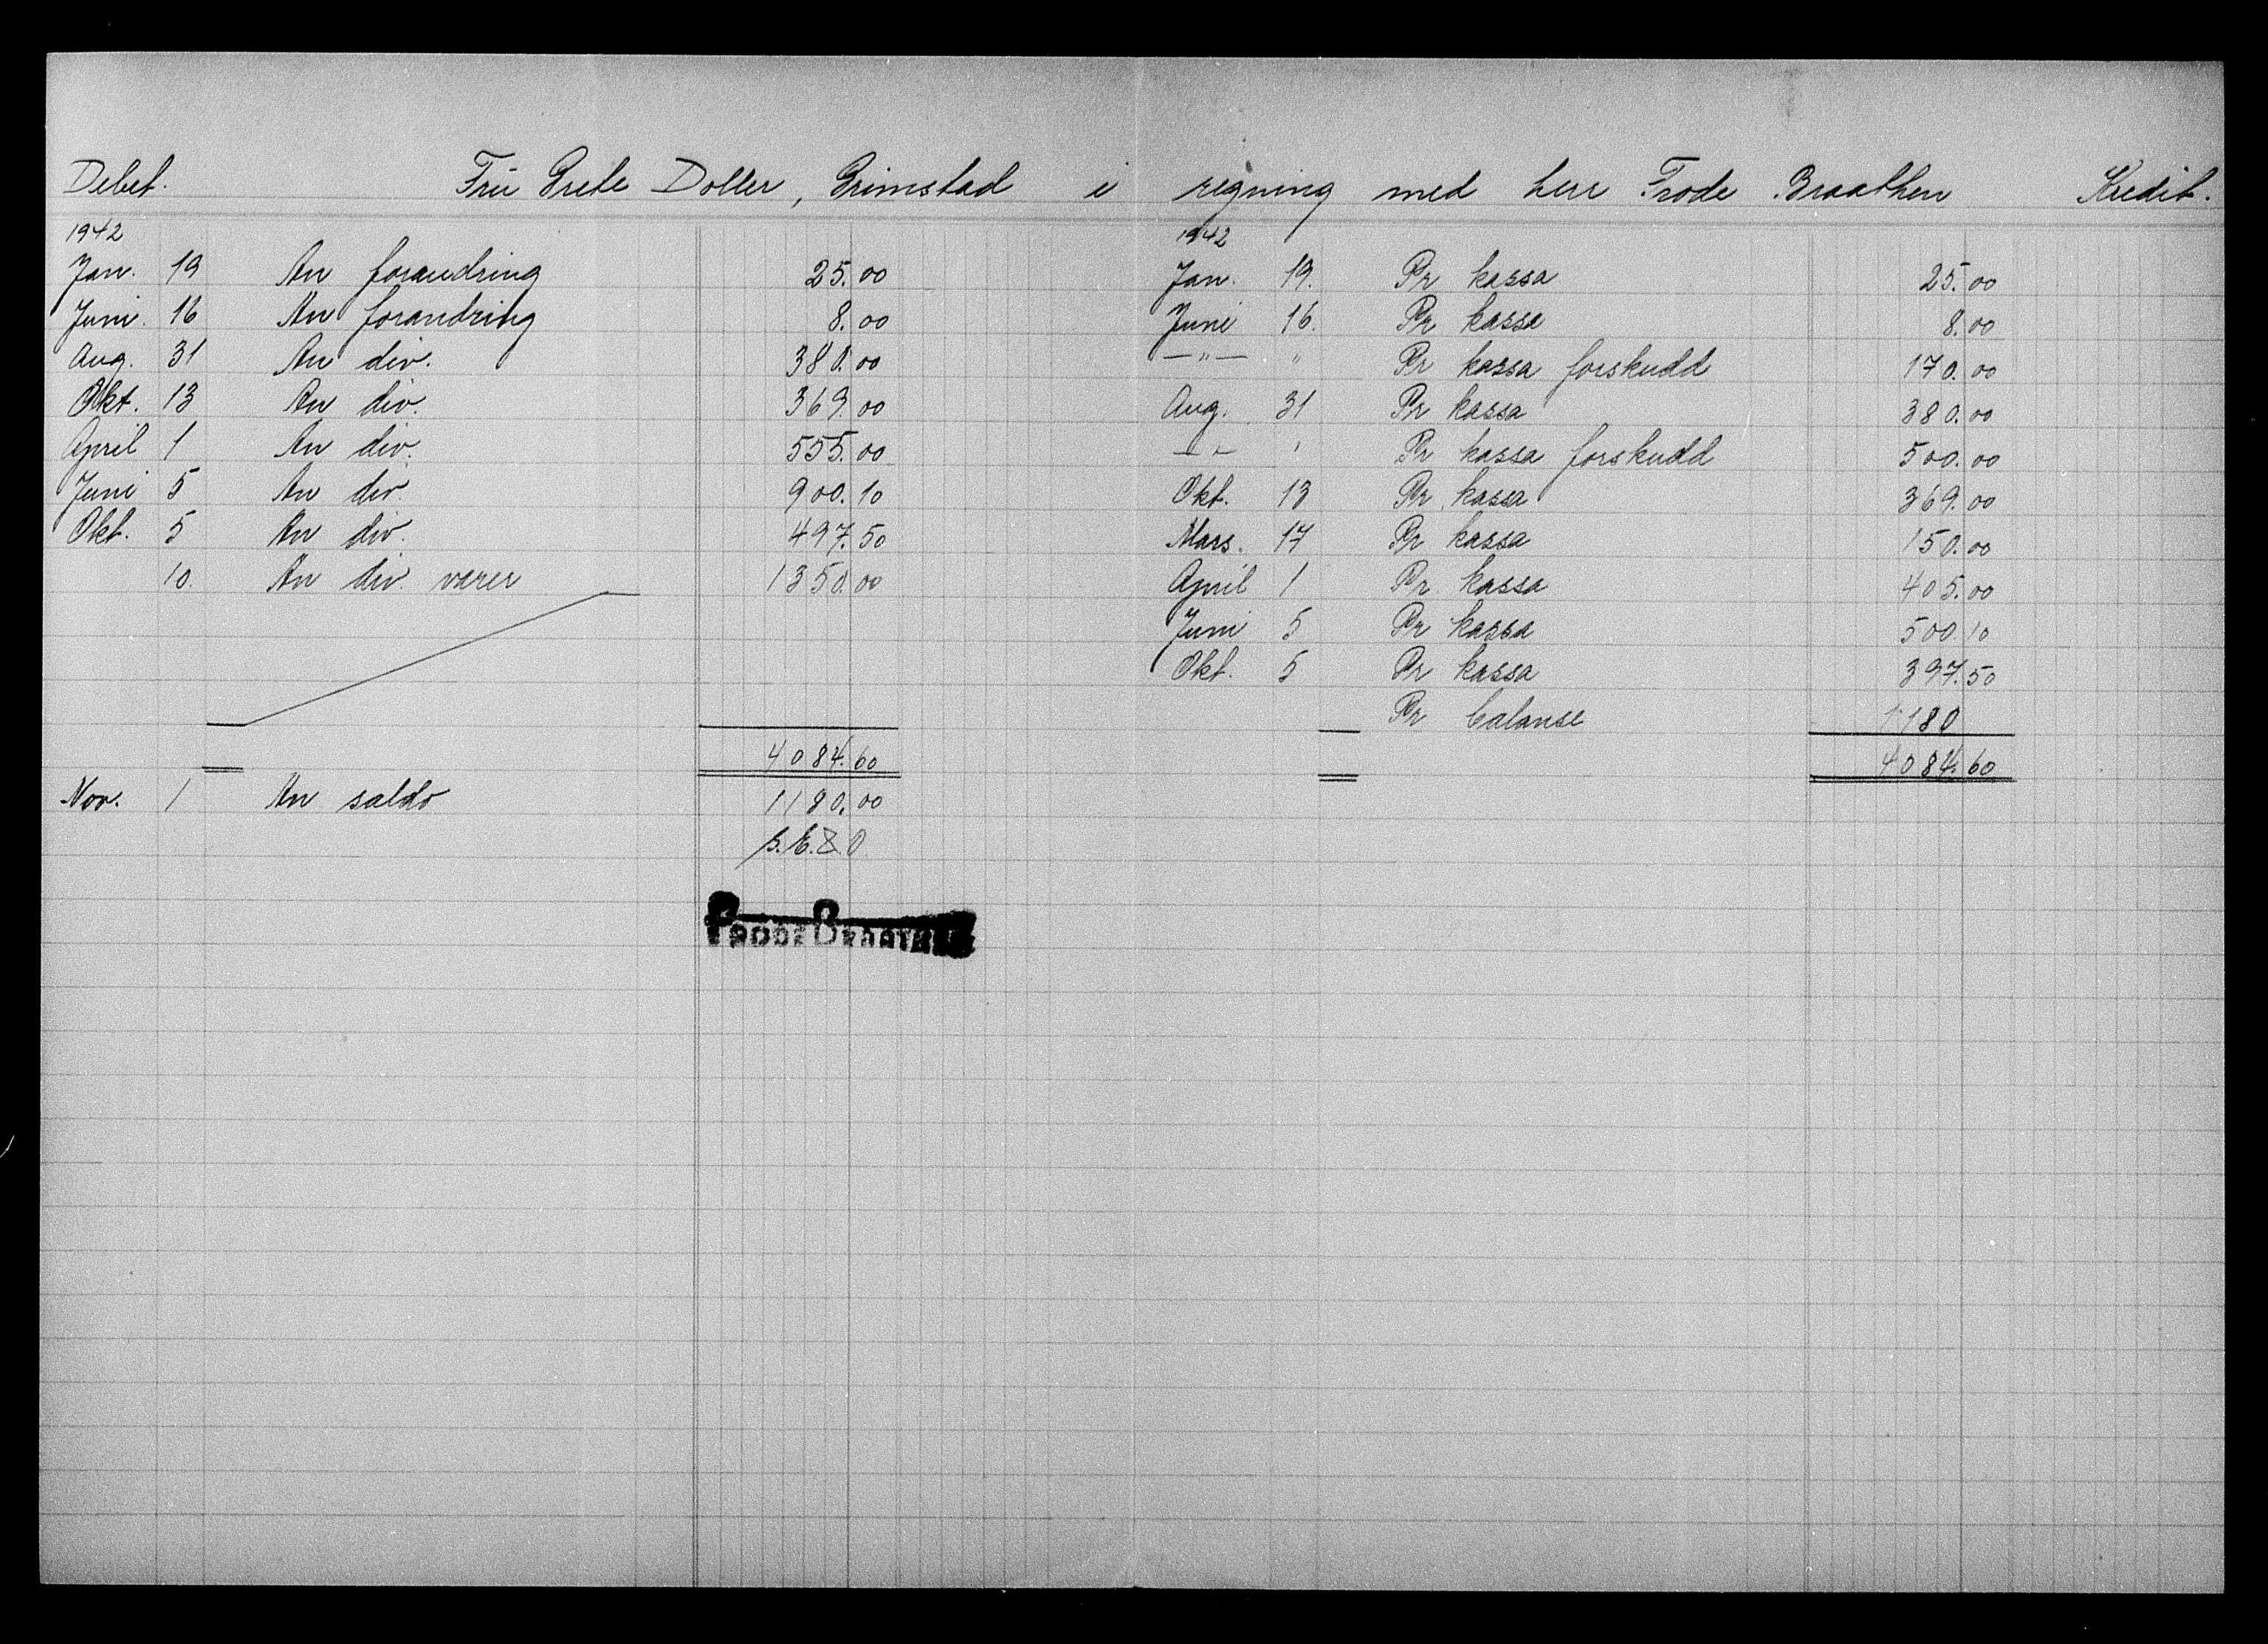 Debet. Fru Grete Doller, Grimstad i regning med herr Frode Braathen Kredit.
1942
Jan. 19 An forandring 25.00
Juni. 16 An forandring 8.00
Aug. 31 An div. 380.00
Okt. 13 An div. 369.00
April 1 An div. 555.00
Juni 5 An div. 900.10
Okt. 5 An div. 497.50
10. An div. varer 1350.00
4084.60
Nov. 1 An saldo 1180.00
S. E. & O
Frode Braathen
1942
Jan. 19. Pr kassa 25.00
Juni 16. Pr kassa 8.00
—"— " Pr kassa forskudd 170.00
Aug. 31 Pr kassa 380.00
—"— " Pr kassa forskudd 500.00
Okt. 13 Pr kassa 369.00
Mars. 17 Pr kassa 150.00
April 1 Pr kassa 405.00
Juni 5 Pr kassa 500.10
Okt. 5 Pr kassa 397.50
Pr balanse 1180
4084.60